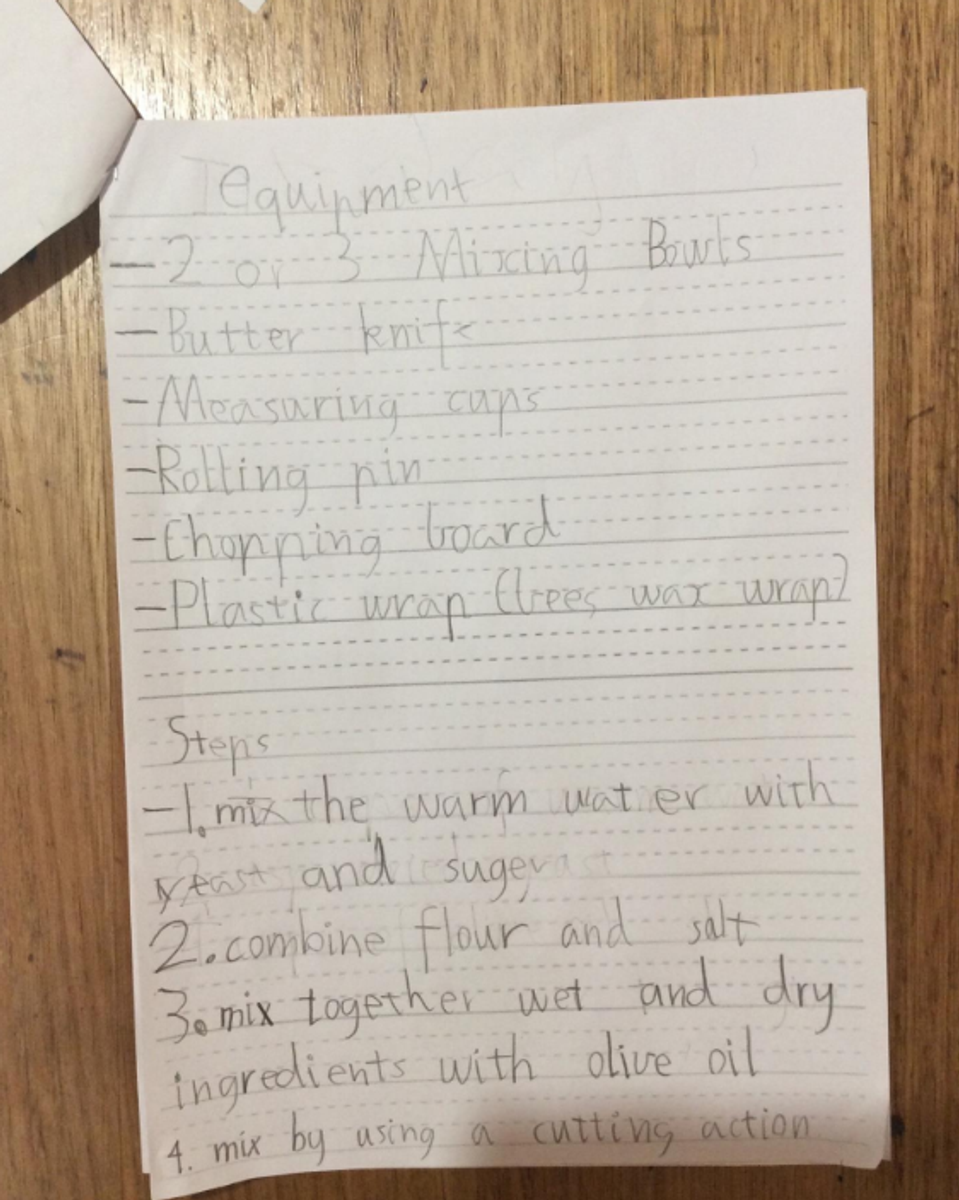 equipment
- 2 or 3 Mixing Bowls
- Butter knife
- Measuring cups
- Rolling pin
- Chopping board
- Plastic wrap (bees wax wrap)
Steps
- 1. mix the warm water with
yeast and suger
2. combine flour and salt
3. mix together wet and dry
ingredients with olive oil
4. mix by using a cutting action